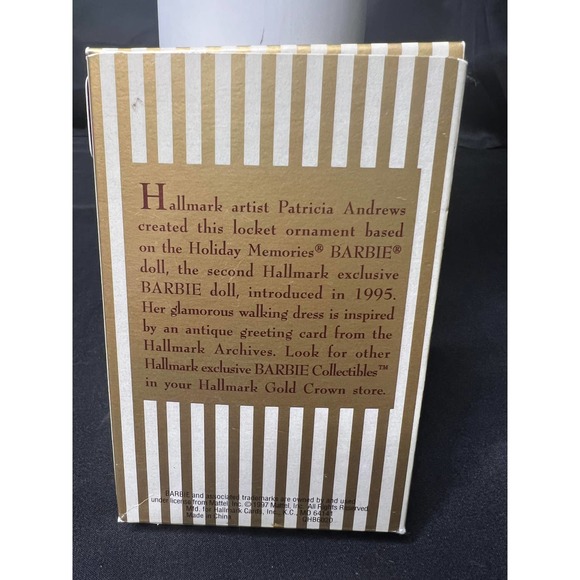 Hallmark artist Patricia Andrews
created this locket ornament based
on the Holiday Memories® BARBIE®
doll, the second Hallmark exclusive
BARBIE doll, introduced in 1995.
Her glamorous walking dress is inspired
by an antique greeting card from the
Hallmark Archives. Look for other
Hallmark exclusive BARBIE Collectibles™
in your Hallmark Gold Crown store.
BARBIE and associated trademarks are owned by and used
under license from Mattel, Inc. © 1997 Mattel, Inc. All Rights Reserved.
Mfd. for Hallmark Cards, Inc., K.C., MO 64141
Made in China